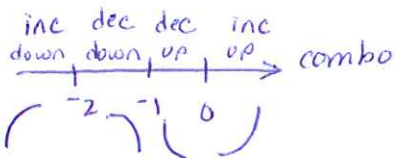 inc dec dec inc
down down up up combo
-2 -1 0